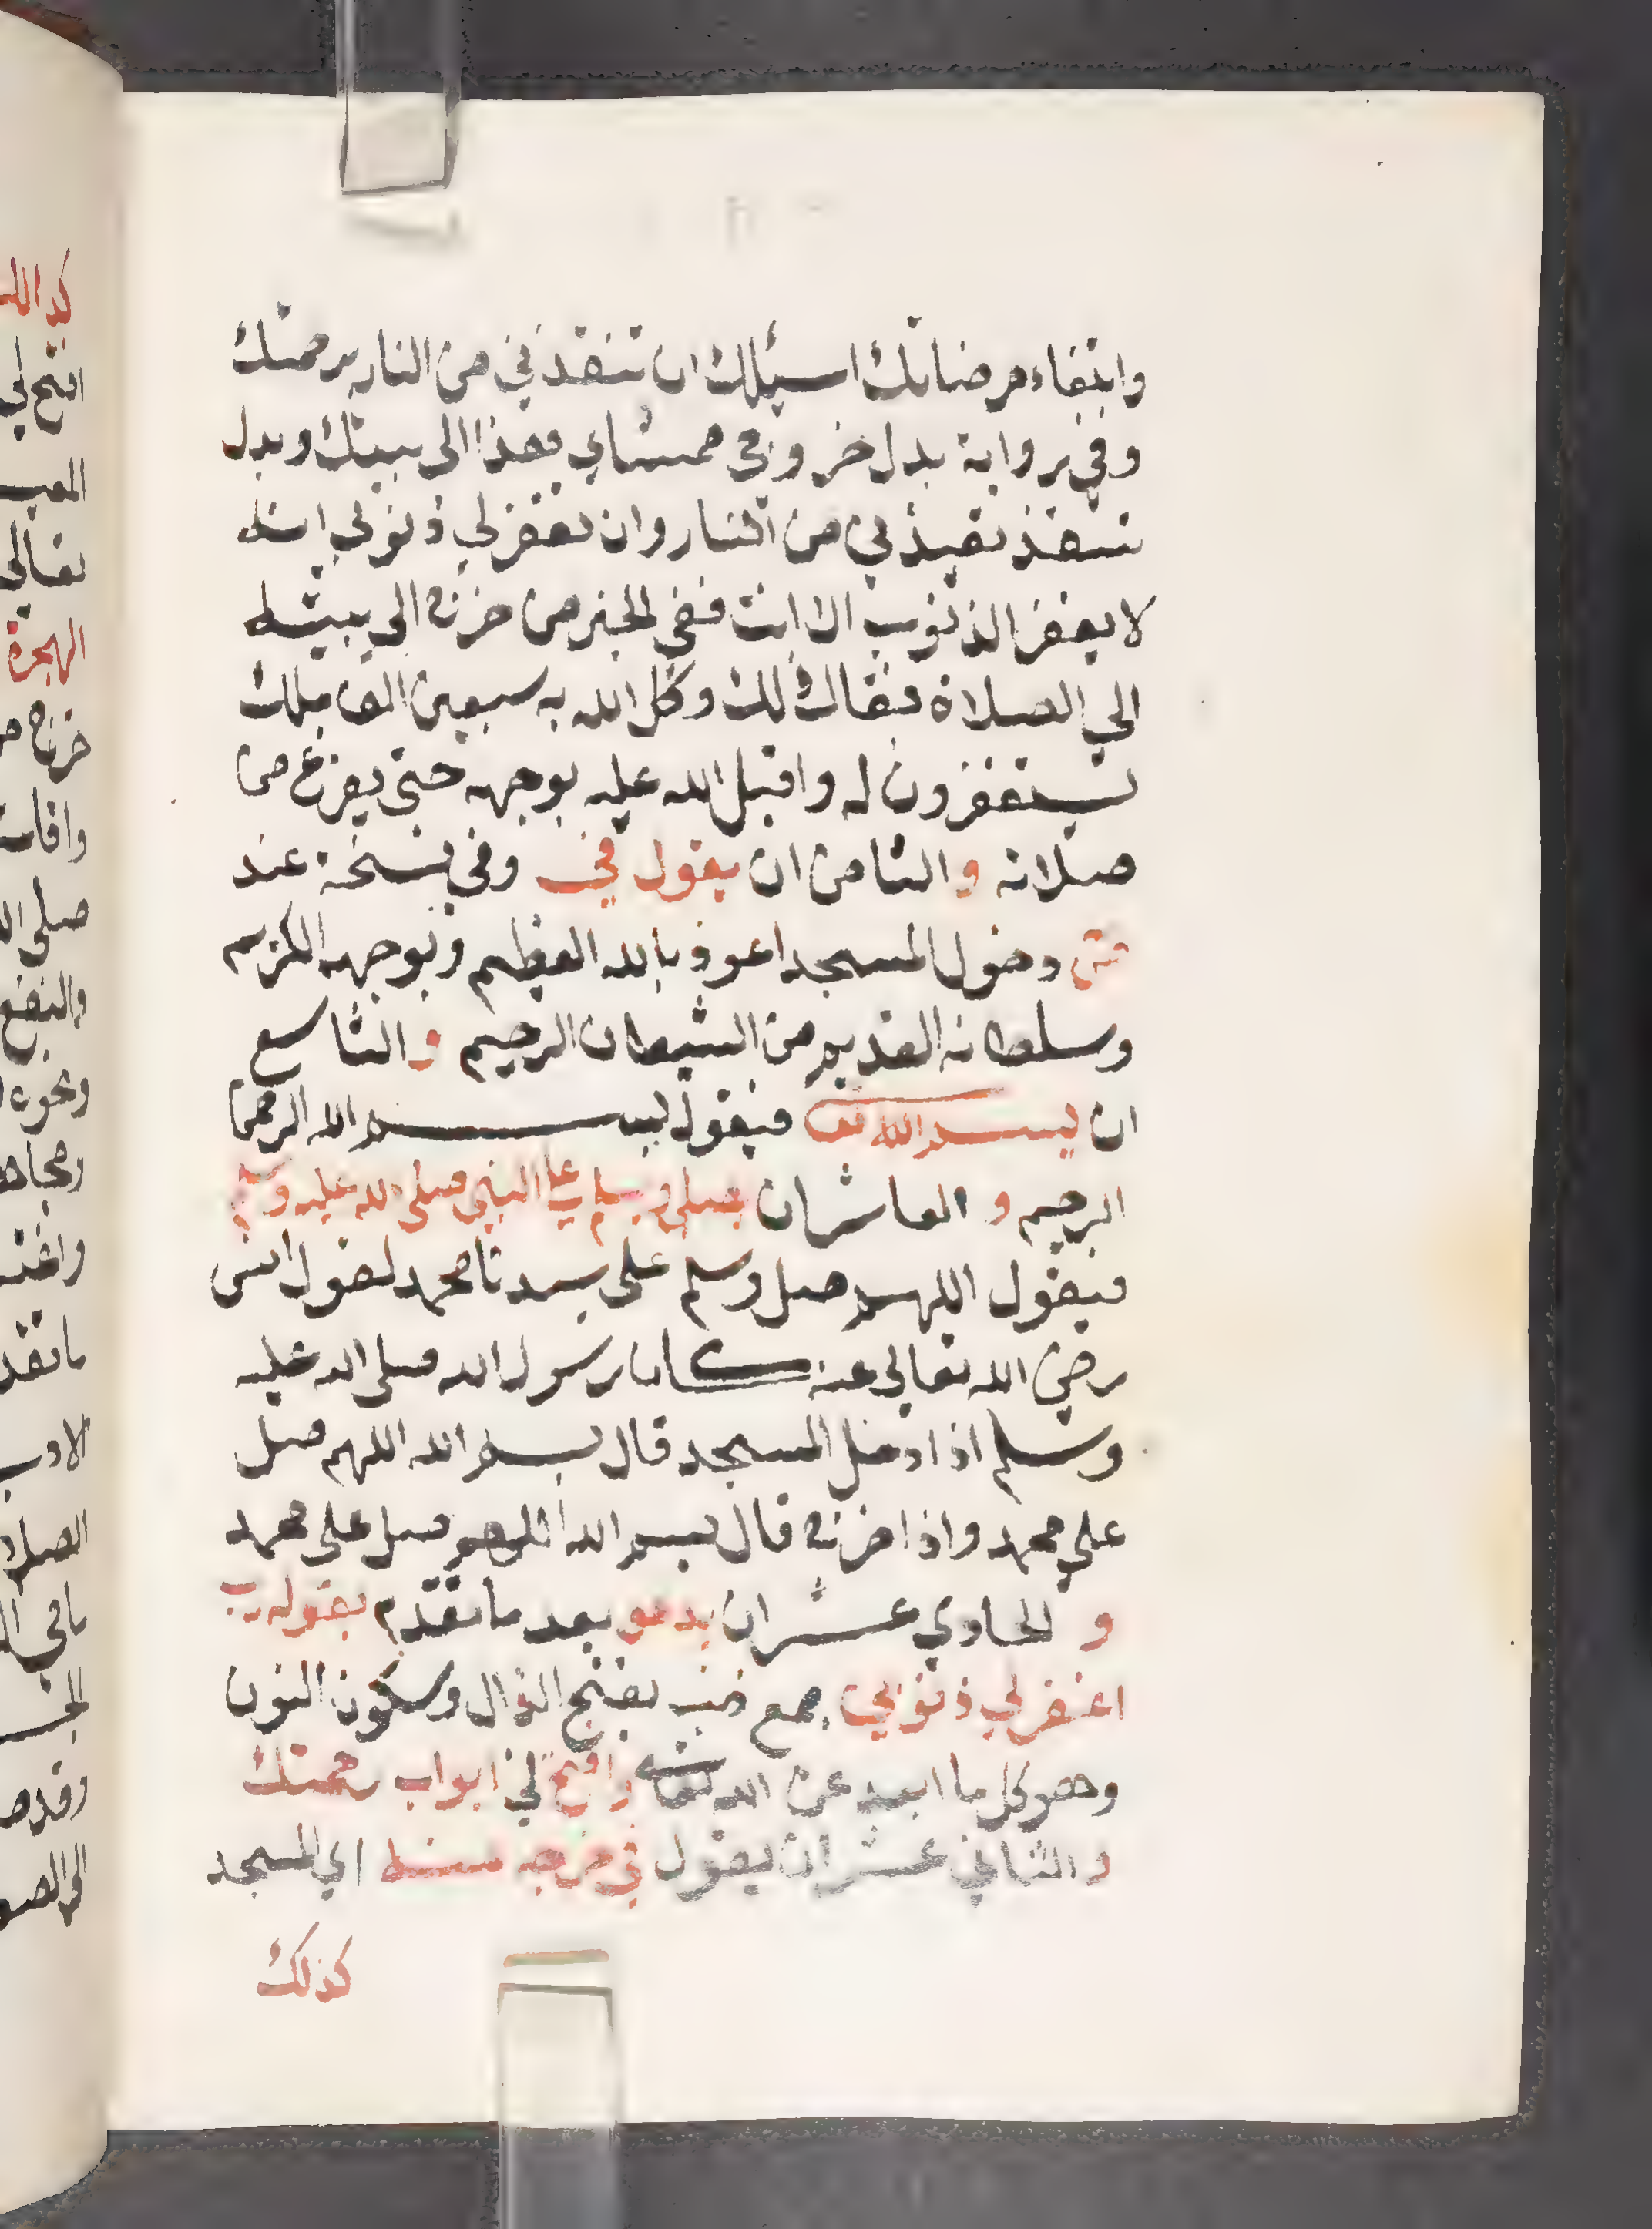 وابتغاء مرضاتك اسيلك ان تنقذني من النار برحمتك
وفي رواية بدل خروجي ممشاي هذا الى بيتك وبدل
تنقذ تعيذني من النار وان تغفر لي ذنوبي انه
لا يغفر الذنوب الا انت ففي الخبر من خرج الي بيته
الي الصلاة فقال ذلك وكل الله به سبعين الف ملك
يستغفرون له واقبل الله عليه بوجهه حتى يفرغ من
صلاته والثامن ان يقول في وفي نسخة عند
دخول المسجد اعوذ بالله العظيم وبوجهه الكريم
وسلطانه القديم من الشيطان الرجيم والتاسع
ان يسم الله تعا فيقول بسم الله الرحمن
الرحيم و العاشر ان يصلي ويسلم على النبي صلى الله عليه وسلم
فيقول اللهم صل وسلم على سيدنا محمد لقول انس
رضي الله تعالى عنه كان رسول الله صلى الله عليه
وسلم اذا دخل المسجد قال بسم الله اللهم صل
علي محمد واذا خرج قال بسم الله اللهم صل على محمد
و الحادي عشر ان يدعو بعد ما تقدم بقوله رب
اغفر لي ذنوبي جمع ذنب بفتح الذال وسكون النون
وهو كل ما ابعد عن الله تعالى وافتح لي ابواب رحمتك
والثاني عشر ان يقول في خرجه منه اي المسجد
كذلك